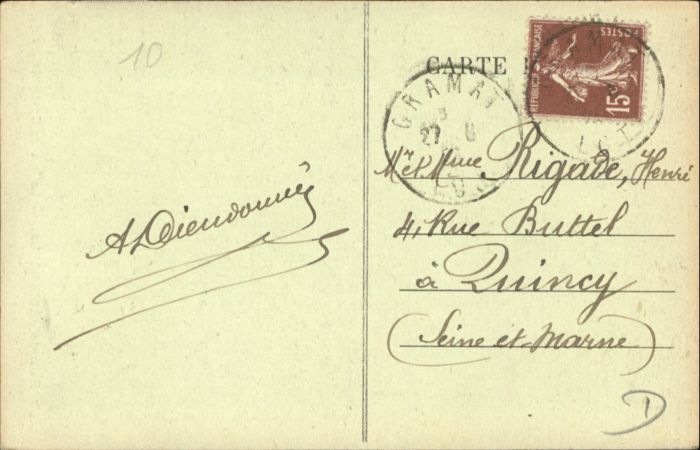 10
CARTE
RÉPUBLIQUE FRANÇAISE
POSTES
15
GRAMAT
27 8
LOT
LOT
Mr et Mme Rigade, Henri
4, Rue Buttel
à Quincy
(Seine et Marne)
A Dieudonné
D